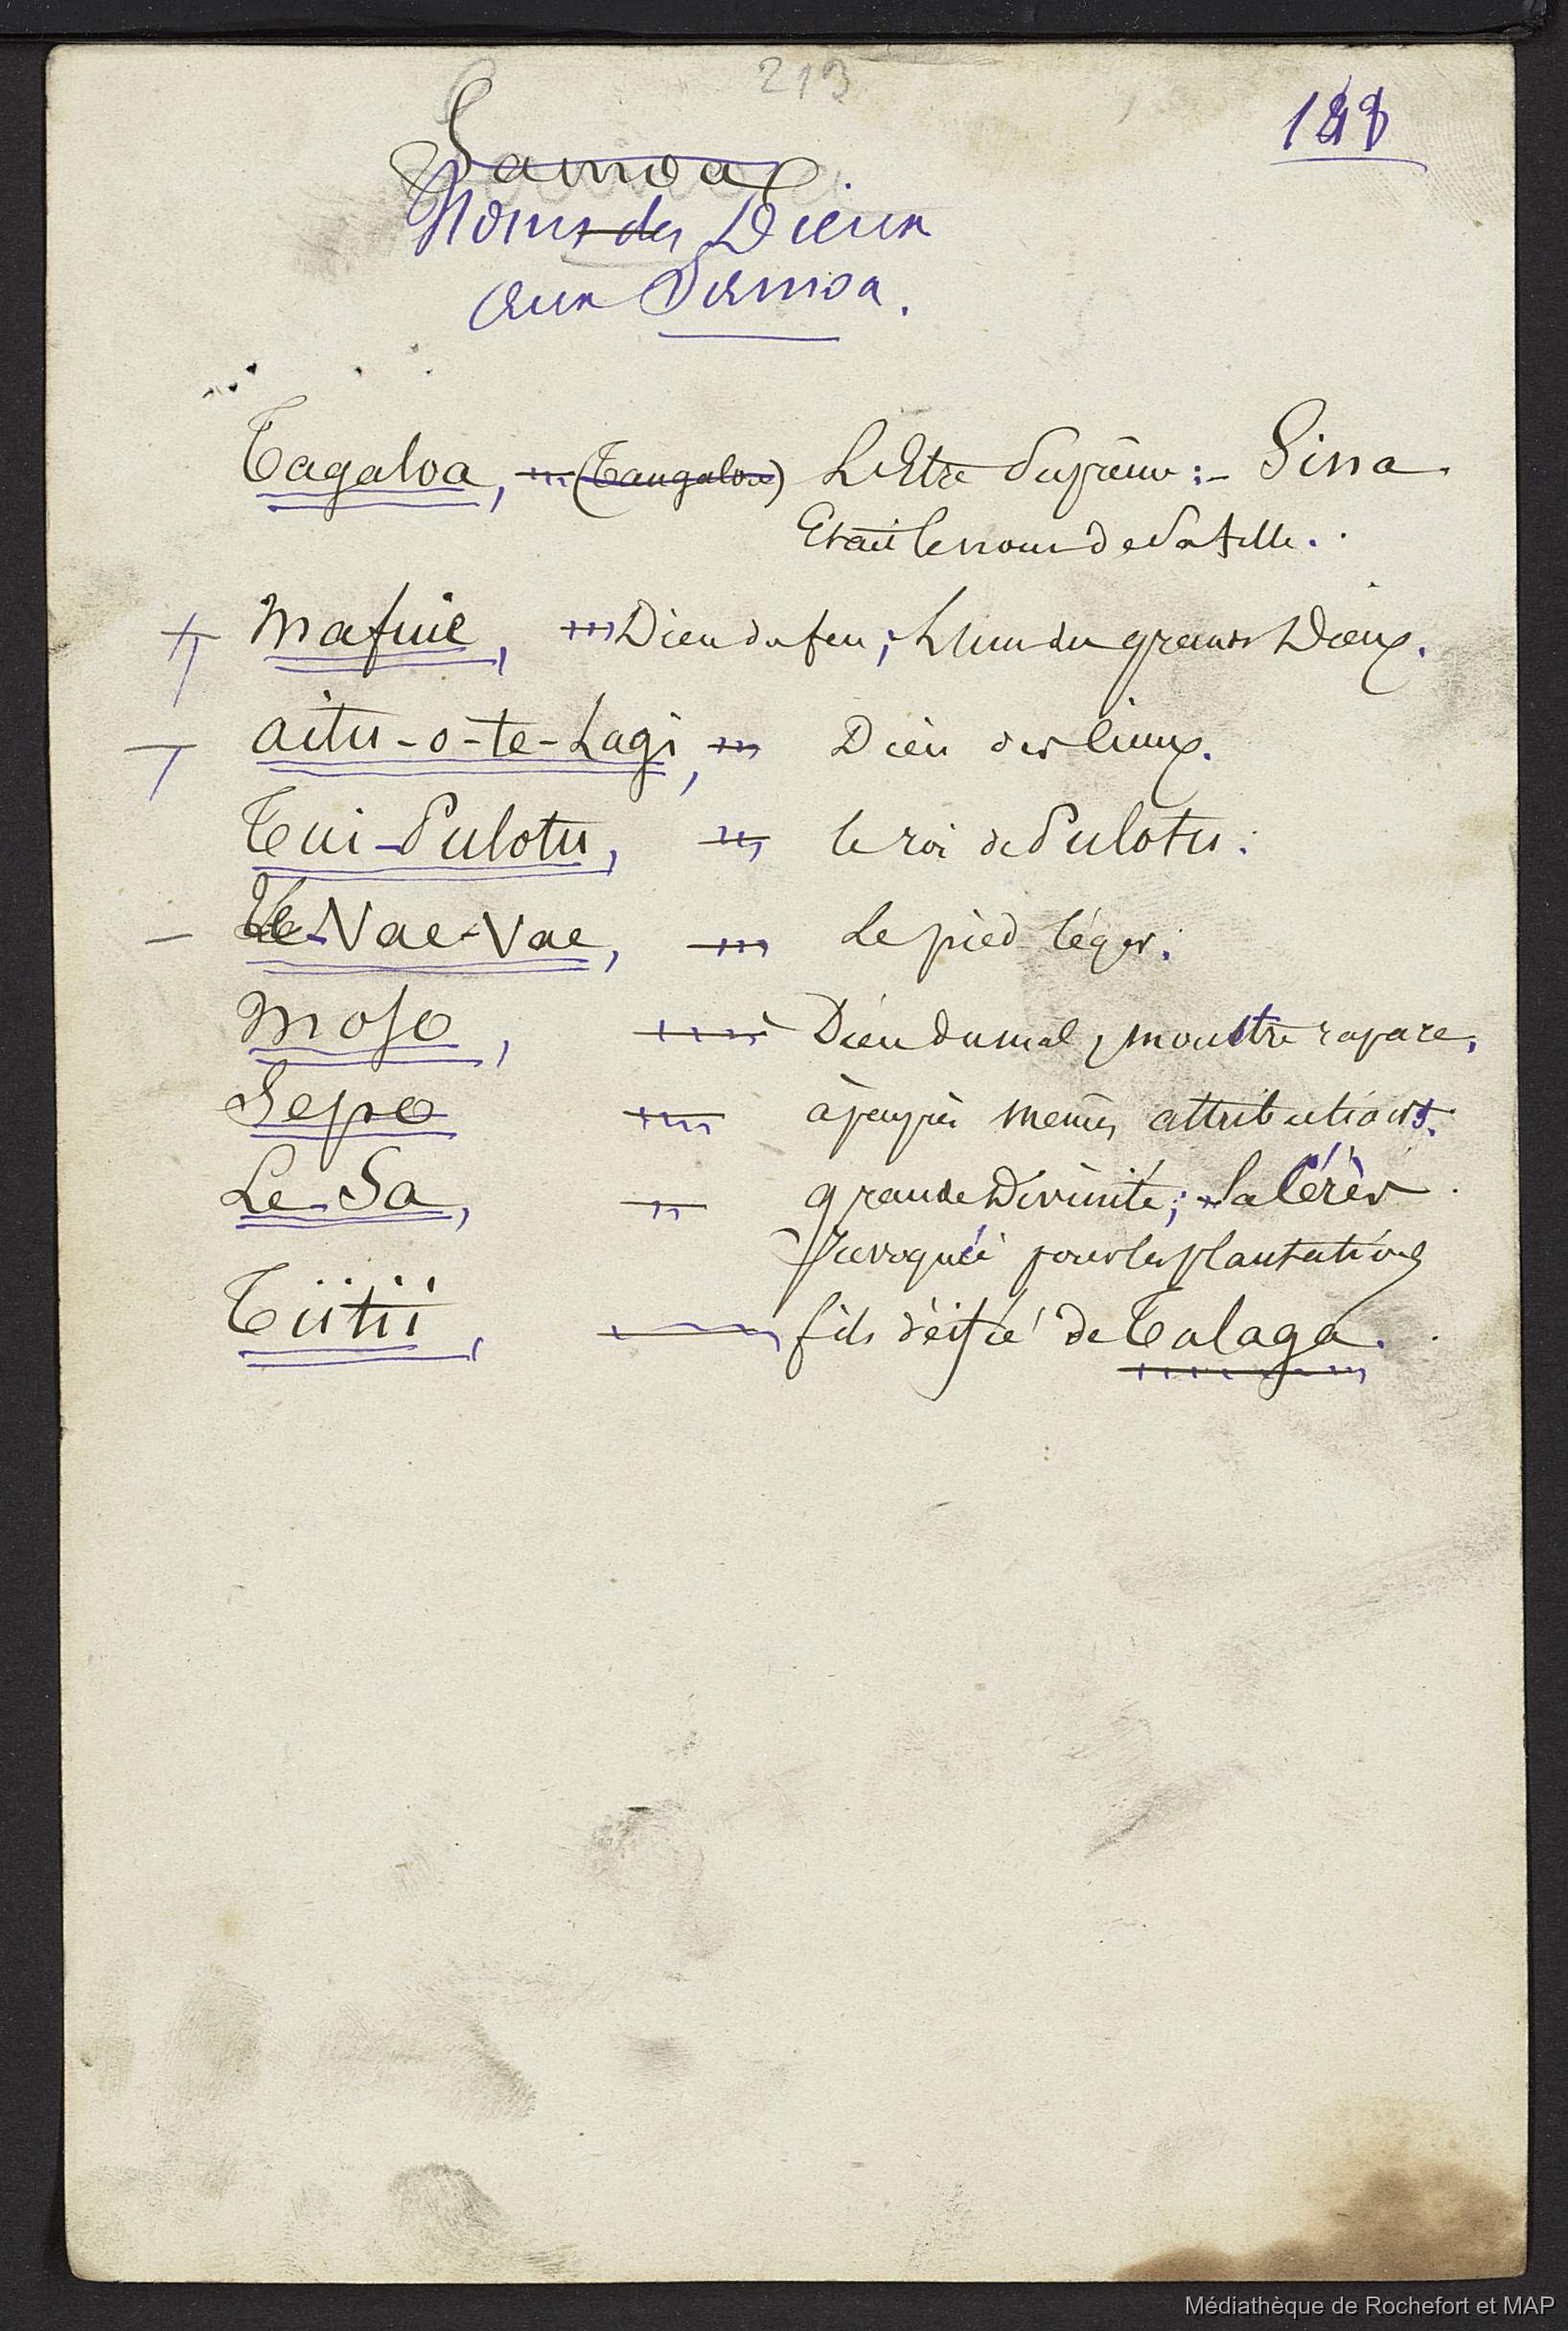 213
148
Samoa.
Noms des Dieux
aux Samoa.
Tagaloa, (Tangaloa) L'Etre Suprême :- Sina.
Etait le nom de Sa fille.
Mafuie, Dieu du feu ; L'un des grands Dieux.
Aitu-o-te-Lagi, Dieu des lieux.
Tui-Pulotu, le roi de Pulotu.
Le-Vae-Vae, Le pied léger.
Moso, Dieu du mal, monstre rapace,
Sepo à peu près mêmes attributions.
Le-Sa, grande Divinité ; La Cérès
Invoquée pour les plantations
Tiitii, fils déifié de Talaga.
Médiathèque de Rochefort et MAP